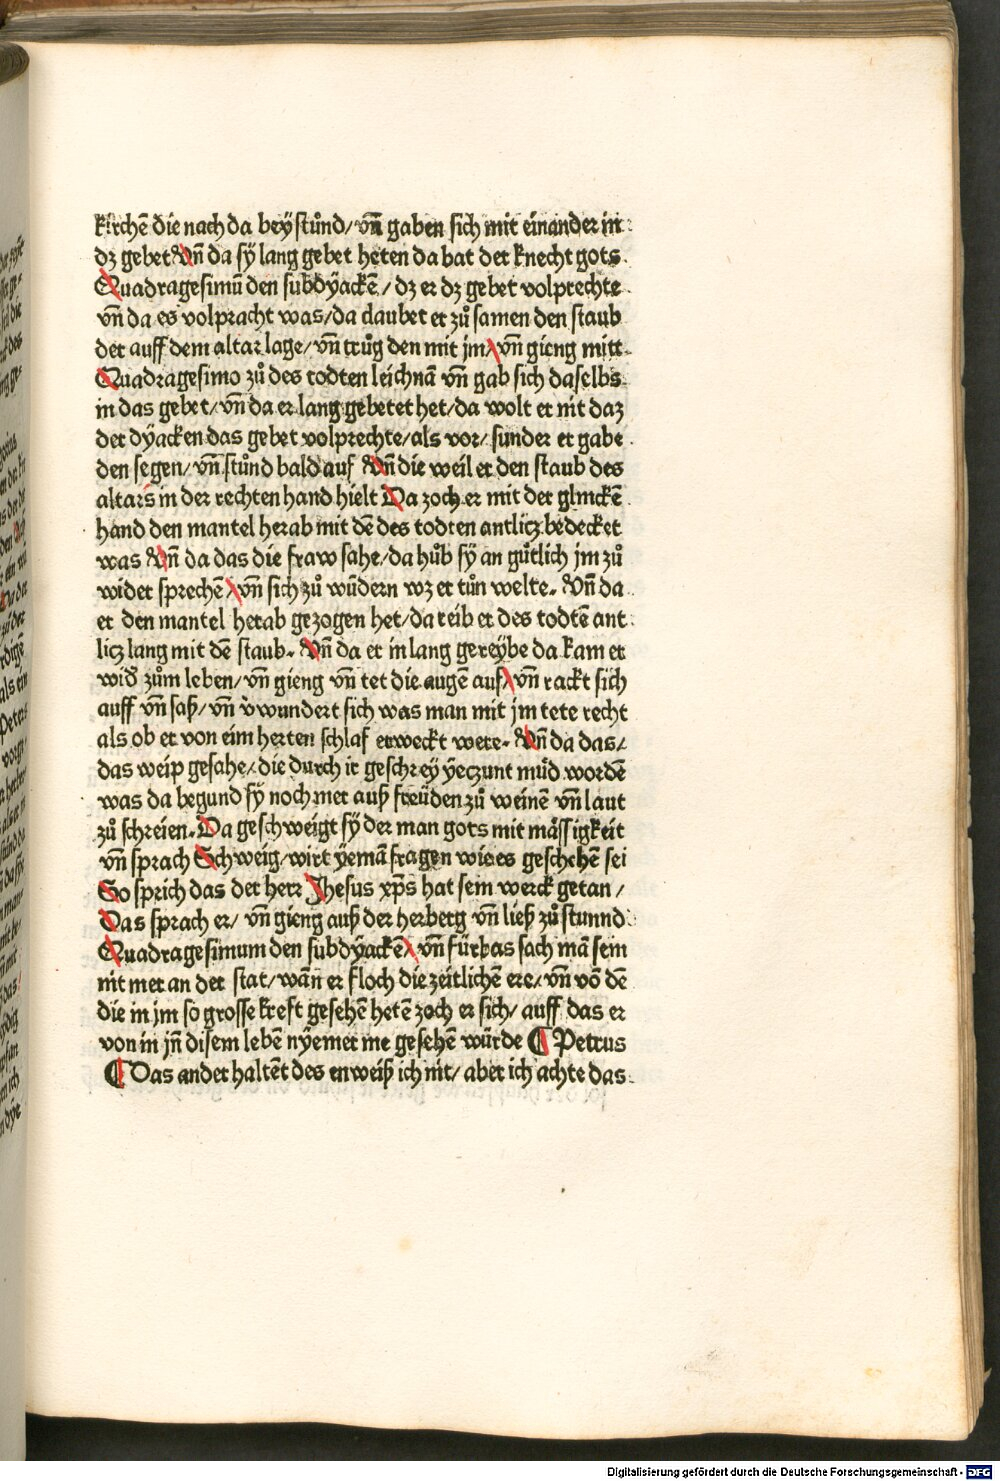 kirchē die nach da beÿ stůnd/ vn̄ gaben sich mit einander in
dz gebet Vn̄ da sÿ lang gebet heten da bat der knecht gots
Quadragesimū den subdÿackē/ dz er dz gebet volprechte
vn̄ da es volpracht was/ da daubet er zů samen den staub
der auff dem altar lage/ vn̄ trůg den mit jm/ vn̄ gieng mitt
Quadragesimo zů des todten leichnā vn̄ gab sich daselbs
in das gebet/ vn̄ da er lang gebetet het/ da wolt er nit daz
der dÿacken das gebet volprechte/ als vor/ sunder er gabe
den segen/ vn̄ stůnd bald auf Vn̄ die weil er den staub des
altars in der rechten hand hielt Da zoch er mit der glinckē
hand den mantel herab mit dē des todten antlicz bedecket
was Vn̄ da das die fraw sahe/ da hůb sÿ an gůtlich jm zů
wider sprechē/ vn̄ sich zů wūdern wz er tůn welte. Vn̄ da
er den mantel herab gezogen het/ da reib er des todtē ant
licz lang mit dē staub. Vn̄ da er in lang gereÿbe da kam er
wid̄ zům leben/ vn̄ gieng vn̄ tet die augen auf/ vn̄ rackt sich
auff vn̄ saß/ vn̄ v̓wundert sich was man mit jm tete recht
als ob er von eim herten schlaf erweckt were. Vn̄ da das/
das weip gesahe/ die durch ir geschreÿ ÿeczunt můd wordē
was da begund sÿ noch mer auß freüden zů weinē vn̄ laut
zů schreien. Da geschweigt sÿ der man gots mit mässigkeit
vn̄ sprach Schweig/ wirt ÿemā fragen wie es geschehē sei
So sprich das der herr Jhesus xp̄s hat sein werck getan/
Das sprach er/ vn̄ gieng auß der herberg vn̄ ließ zů stunnd
Quadragesimum den subdÿackē/ vn̄ fürbas sach mā sein
nit mer an der stat/ wān er floch die zeitlichē ere/ vn̄ vō dē
die in jm so grosse kreft gesehē hetē zoch er sich/ auff das er
von in jn̄ disem lebē nÿemer me gesehē würde ¶ Petrus
¶ Das ander haltēt des enweiß ich nit/ aber ich achte das
Digitalisierung gefördert durch die Deutsche Forschungsgemeinschaft - DFG